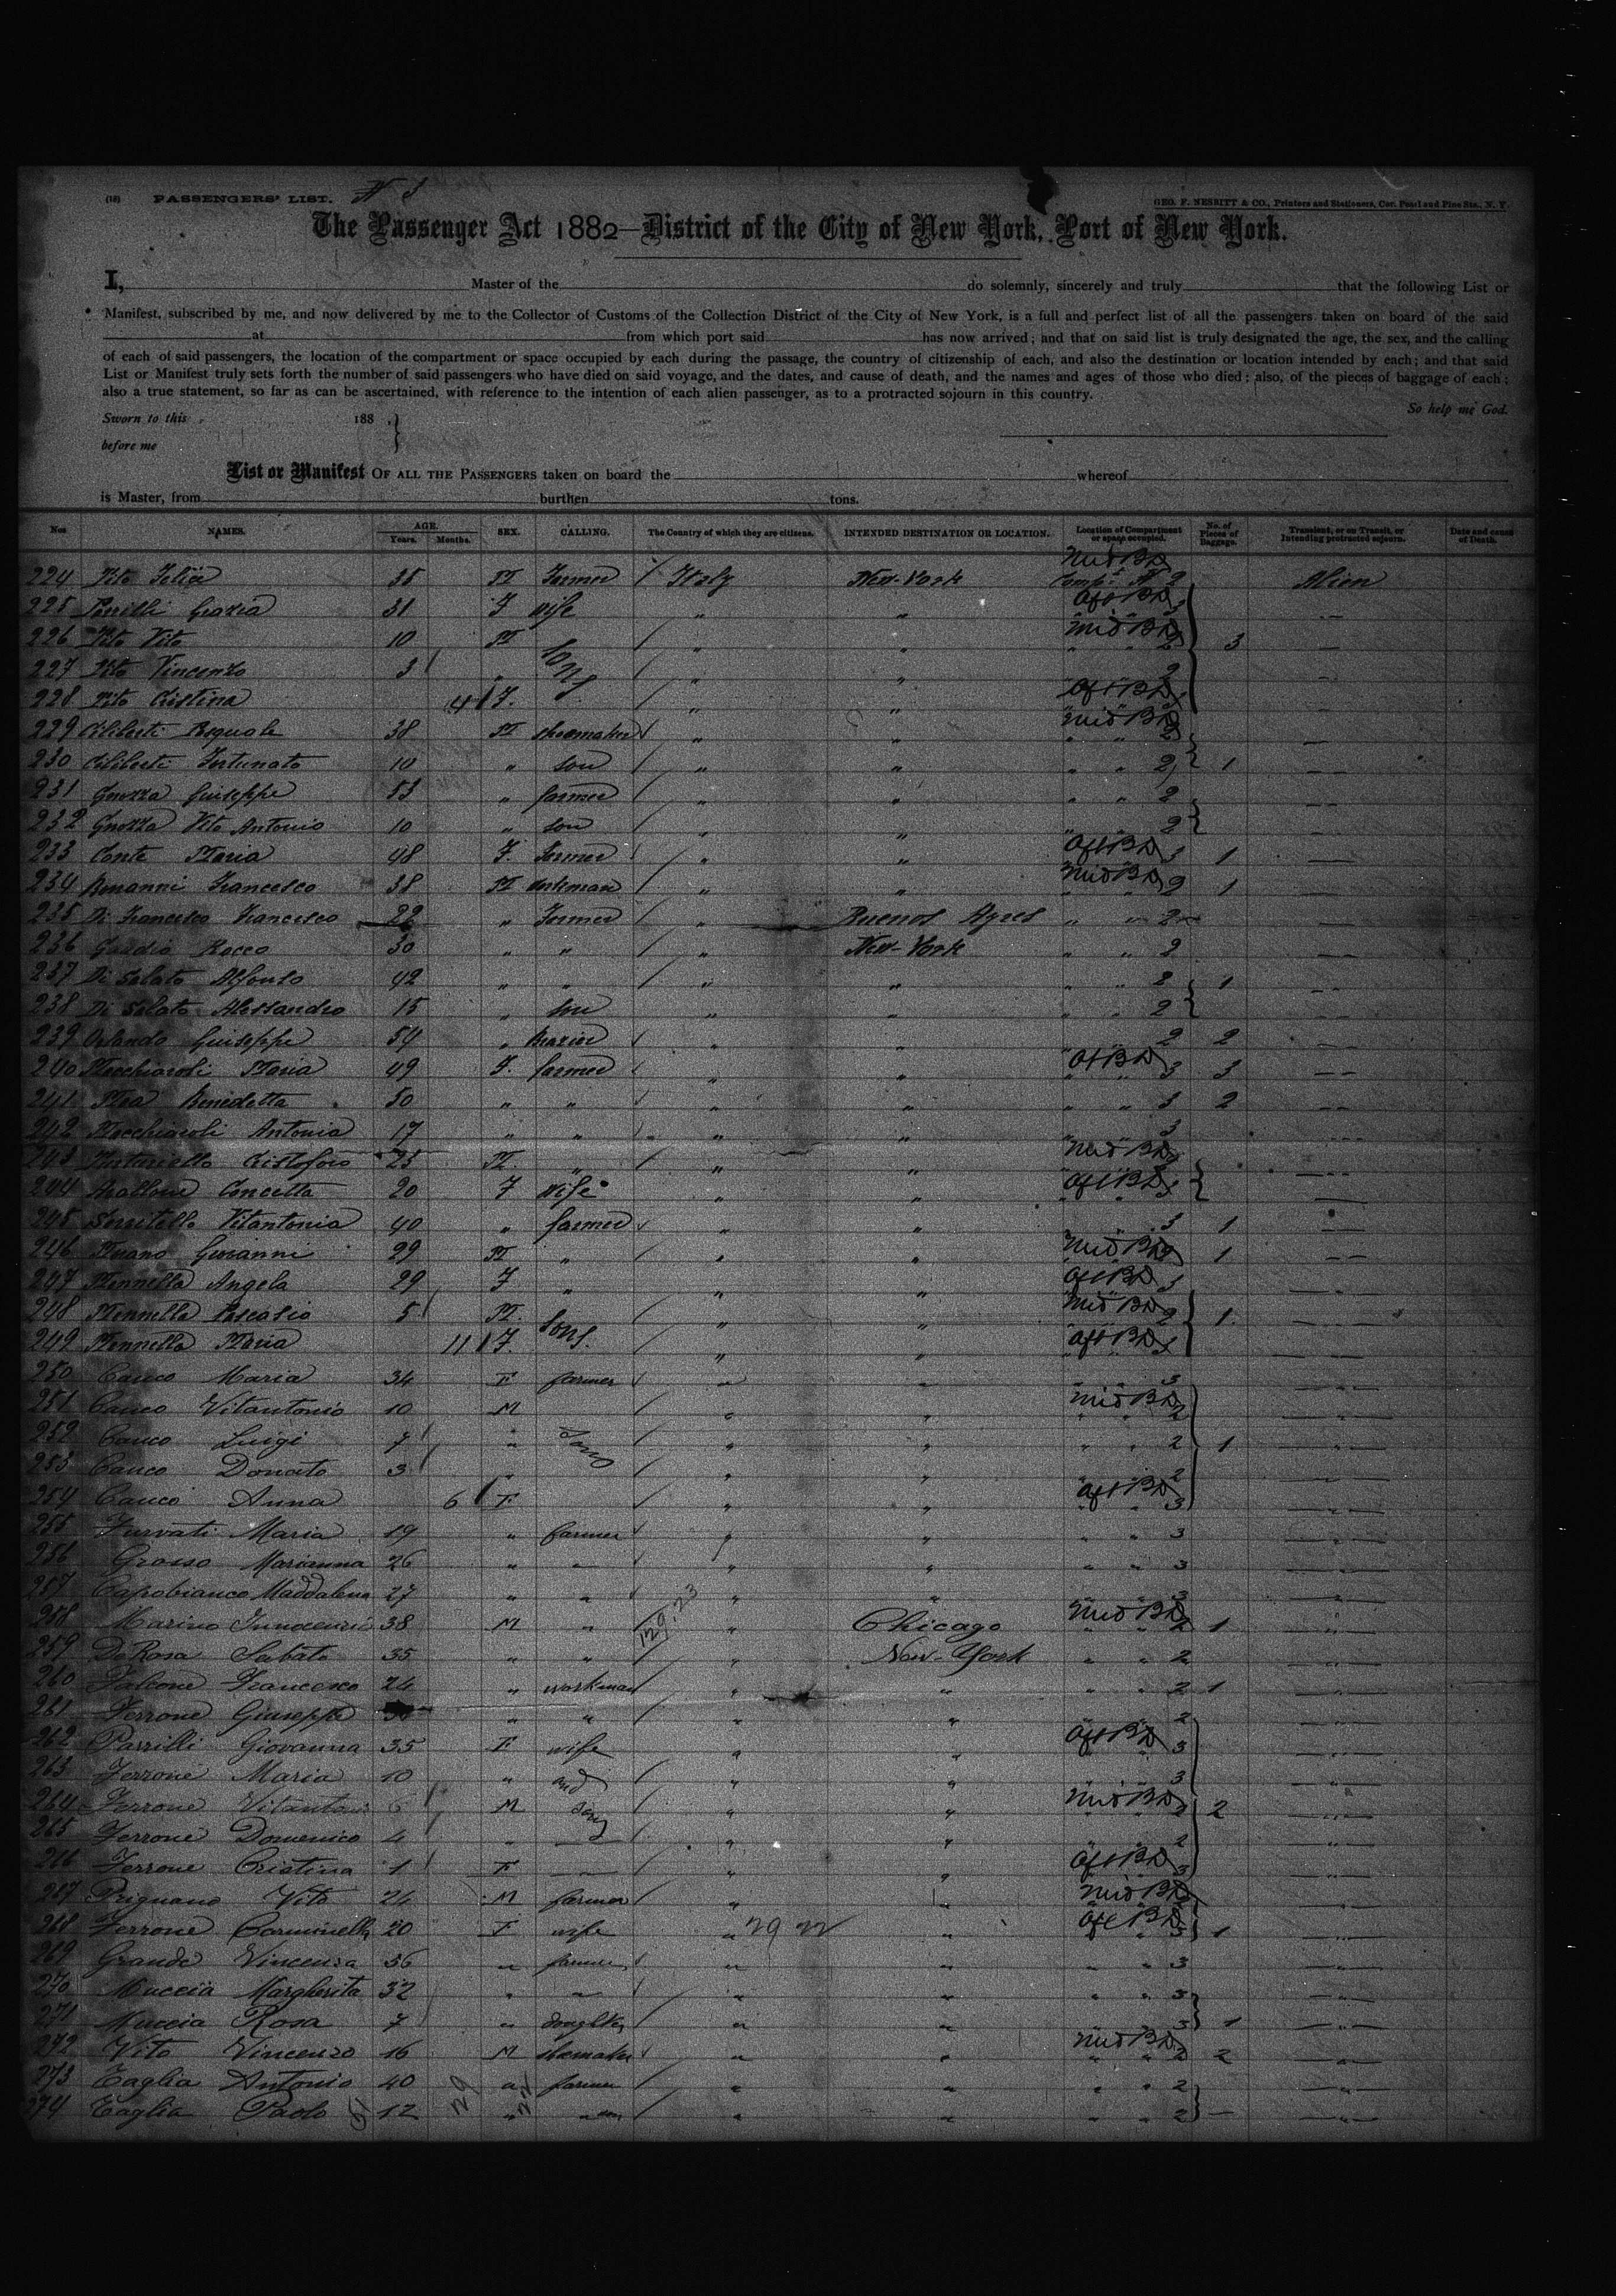 (18) PASSENGERS' LIST. N 3
GEO. F. NESBITT & CO., Printers and Stationers, Cor. Pearl and Pine Sts., N. Y.
The Passenger Act 1882—District of the City of New York, Port of New York.
I, Master of the do solemnly, sincerely and truly that the following List or
Manifest, subscribed by me, and now delivered by me to the Collector of Customs of the Collection District of the City of New York, is a full and perfect list of all the passengers taken on board of the said
at from which port said has now arrived; and that on said list is truly designated the age, the sex, and the calling
of each of said passengers, the location of the compartment or space occupied by each during the passage, the country of citizenship of each, and also the destination or location intended by each; and that said
List or Manifest truly sets forth the number of said passengers who have died on said voyage, and the dates, and cause of death, and the names and ages of those who died; also, of the pieces of baggage of each;
also a true statement, so far as can be ascertained, with reference to the intention of each alien passenger, as to a protracted sojourn in this country.
So help me God.
Sworn to this 188 .}
before me
List or Manifest OF ALL THE PASSENGERS taken on board the whereof
is Master, from burthen tons.
Nos NAMES. AGE. Years. Months. SEX. CALLING. The Country of which they are citizens. INTENDED DESTINATION OR LOCATION. Location of Compartment or space occupied. No. of Pieces of Baggage. Transient, or on Transit, or Intending protracted sojourn. Date and cause of Death.
224 Vito Felice 35 M Farmer / Italy New-York Mid BD Comp. N 2 Alien
225 Perrilli Grazia 31 F wife " " Aft BD 3
226 Vito Vito 10 M / " " Mid BD 2 3
227 Vito Vincenzo 3 " sons / " " 2
228 Vito Cristina 4 F. / " " Aft BD 3
229 Ciliberti Pasquale 38 M shoemaker / " " Mid BD 2
230 Ciliberti Fortunato 10 " son / " " " " 2 1
231 Gnozza Giuseppe 53 " farmer / " " " " 2
232 Gnozza Vito Antonio 10 " son / " " " " 2
233 Conte Maria 48 F. Farmer / " " Aft BD 3 1
234 Bonanni Francesco 38 M workman / " " Mid BD 2 1
235 Di Francesco Francesco 22 " Farmer / " Buenos Ayres " " 2
236 Rocco 30 " " / " New-York " " 2
237 Di Salato Alfonso 42 " " / " " " " 2 1
238 Di Salato Alessandro 15 " son " " " " 2
239 Orlando Giuseppe 54 " / " " " " 2 2
240 Macchiaroli Maria 49 F. farmer / " " Aft BD 3 3
241 Mea Benedetta 50 " " / " " " " 3 2
242 Macchiaroli Antonia 17 " " / " " " " 3
243 Cristofaro 25 M. " / " " Mid BD
244 Avallone Concetta 20 F wife " " Aft BD 3
245 Vitantonia 40 " farmer / " " 3 1
246 Murano Giovanni 29 M " / " " Mid BD 2 1
247 Mennella Angela 29 F " " " Aft BD 3
248 Mennella Pascasio 5 M. sons. / " " Mid BD 2 1
249 Mennella Maria 11 F. / " " Aft BD 3
250 Cauco Maria 34 F farmer / " " 3
251 Cauco Vitantonio 10 M " " Mid BD 2
252 Cauco Luigi 7 " sons / " " " " 2 1
253 Cauco Donato 3 " / " " 2
254 Cauco Anna 6 F / " " Aft BD 3
255 Furvati Maria 19 " farmer / " " " " 3
256 Grasso Marianna 26 " " / " " " " 3
257 Capobianco Maddalena 27 " " / " " 3
258 Marino Innocenzio 38 M " " Chicago Mid BD 2 1
259 De Rosa Sabato 35 " " / " New-York " " 2
260 Falcone Francesco 24 " workman / " " " " 2 1
261 Ferrone Giuseppe " " / " " 2
262 Parrilli Giovanna 35 F wife " " Aft BD 3
263 Ferrone Maria 10 " and / " " 3
264 Ferrone Vitantonio 6 M sons / " " Mid BD 2 2
265 Ferrone Domenico 4 " / " " 2
266 Ferrone Cristina 1 F / " " Aft BD 3
267 Prignano Vito 24 M farmer / " " Mid BD
268 Ferrone Carminella 20 F wife " 29 22 " Aft BD 3 1
269 Grande Vincenza 56 " farmer / " " " " 3
270 Muccia Margherita 32 " " / " " " " 3
271 Muccia Rosa 7 " daughter / " " " " 3 1
272 Vito Vincenzo 16 M shoemaker / " " Mid BD 2 2
273 Taglia Antonio 40 " farmer / " " " " 2
274 Taglia Paolo 12 " son / " " " " 2